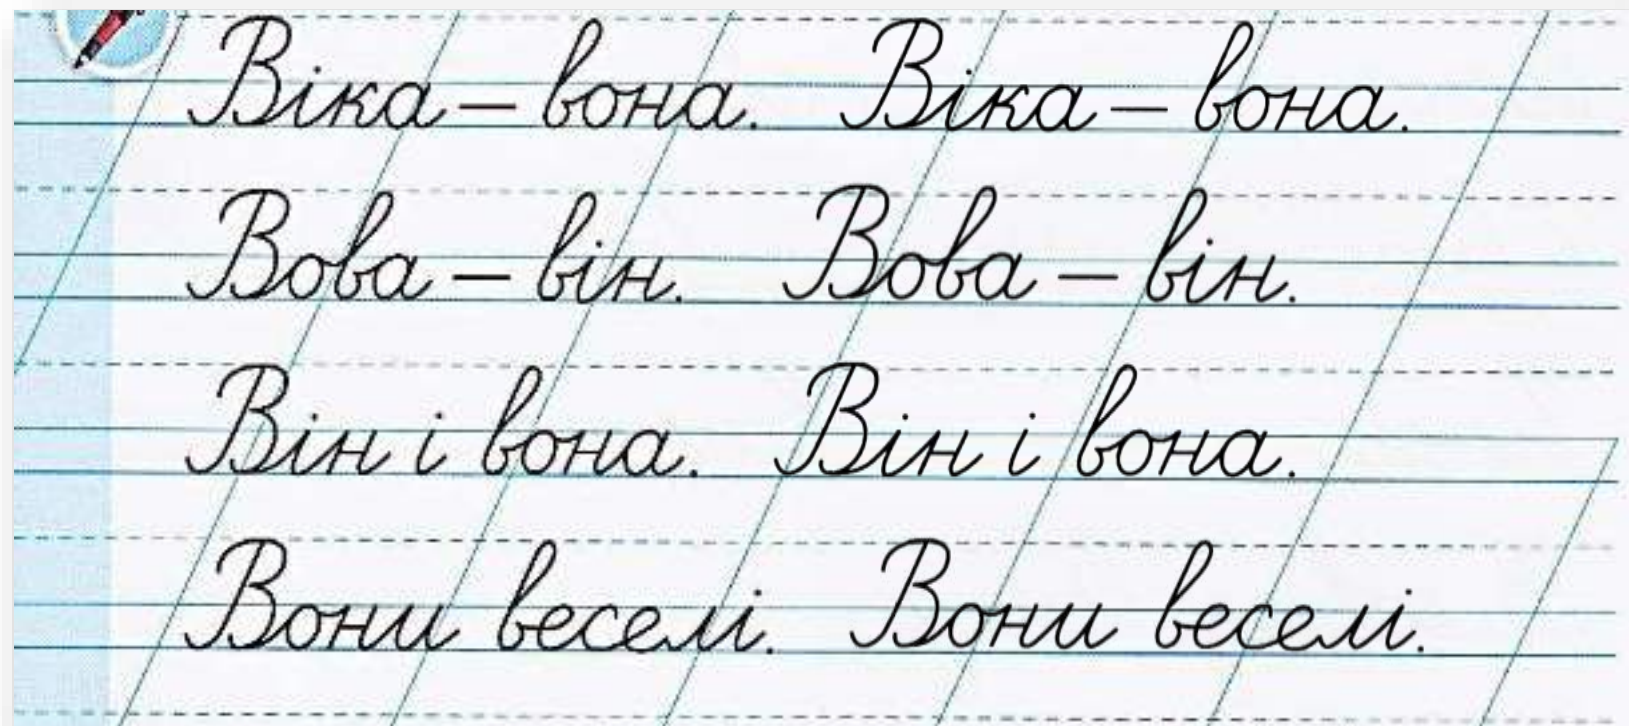 Віка – вона. Віка – вона.
Вова – він. Вова – він.
Він і вона. Він і вона.
Вони веселі. Вони веселі.